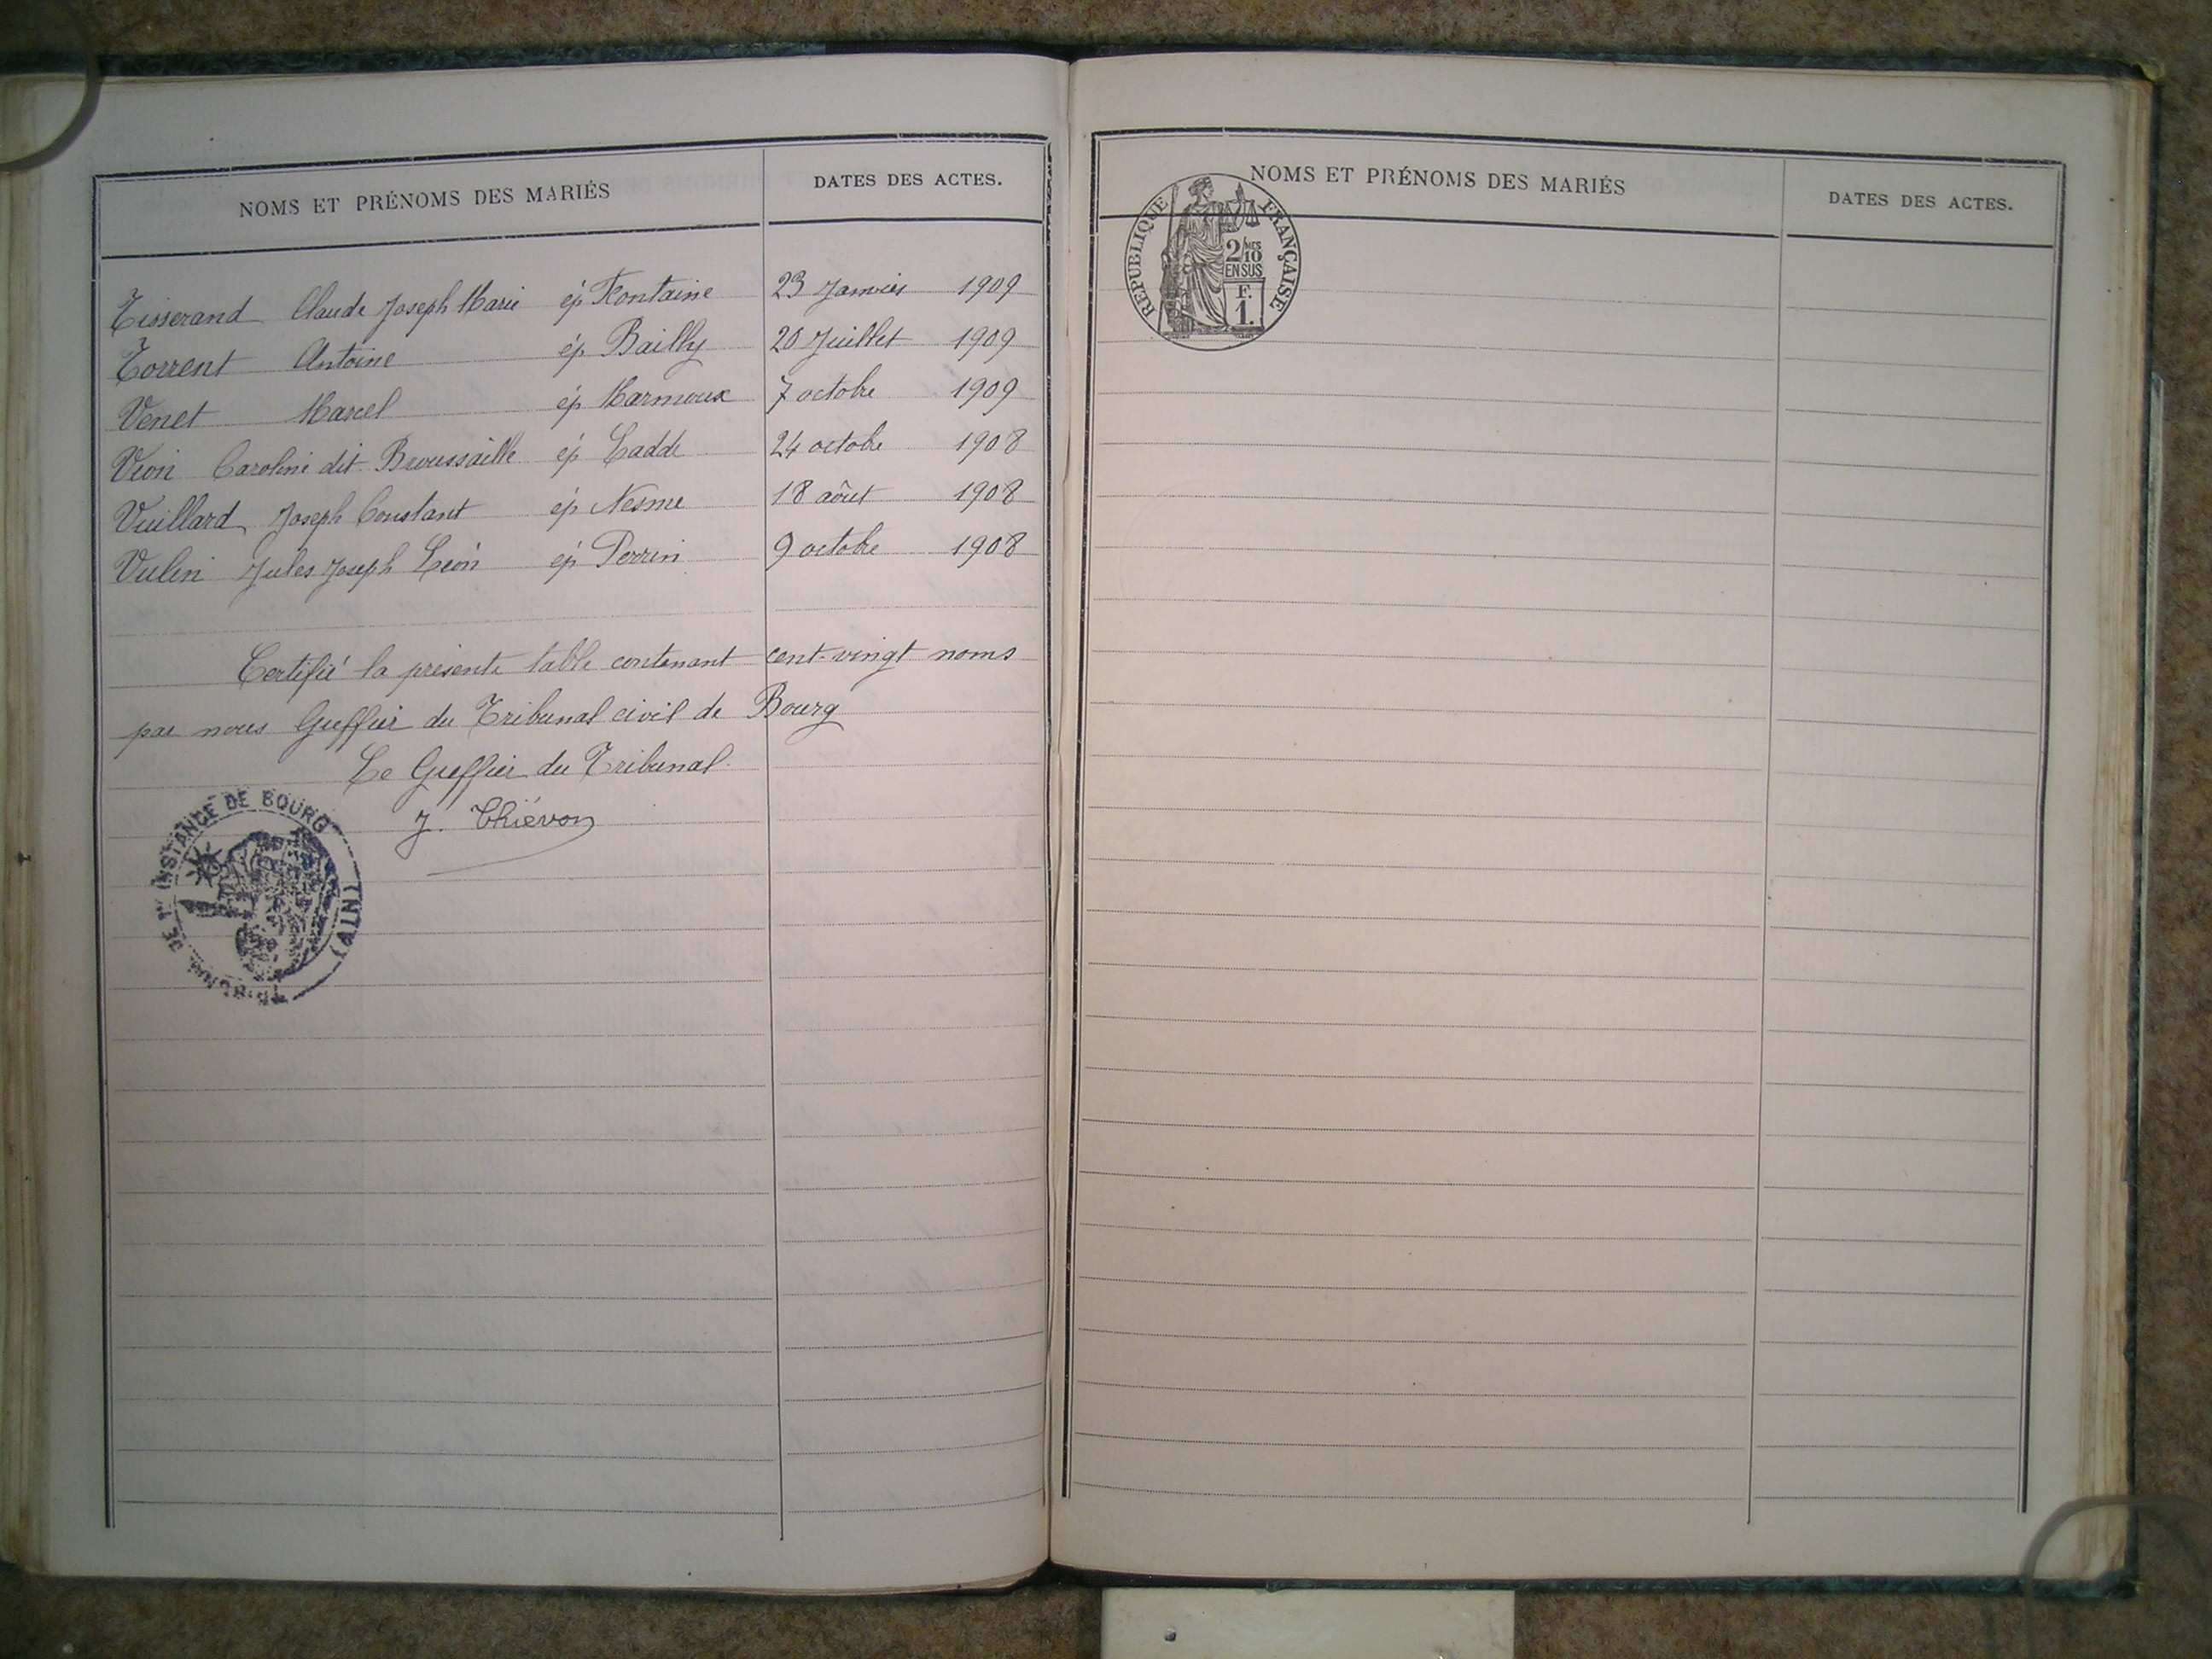 NOMS ET PRÉNOMS DES MARIÉS DATES DES ACTES.
Tisserand Claude Joseph Marie ép Fontaine 23 Janvier 1909
Torrent Antoine ép Bailly 20 Juillet 1909
Venet Marcel ép Marmoux 7 octobre 1909
Vion Caroline dit Broussaille ép Ladde 24 octobre 1908
Vuillard Joseph Constant ép Nesme 18 aôut 1908
Vulin Jules Joseph Léon ép Perrin 9 octobre 1908
Certifié la présente table contenant cent-vingt noms
par nous Greffier du Tribunal civil de Bourg
Le Greffier du Tribunal
J. Thiévon
TRIBUNAL DE 1RE INSTANCE DE BOURG (AIN)
NOMS ET PRÉNOMS DES MARIÉS DATES DES ACTES.
RÉPUBLIQUE FRANÇAISE
2/10MES
EN SUS
F.
1.